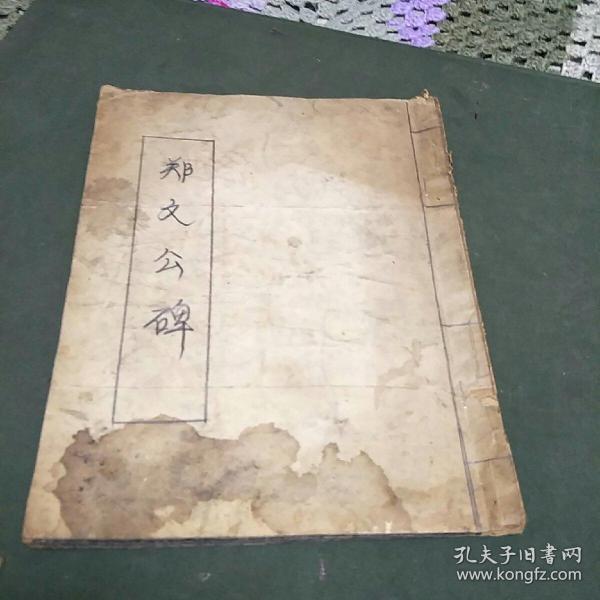 郑文公碑
孔夫子旧書网
www.kongfz.com